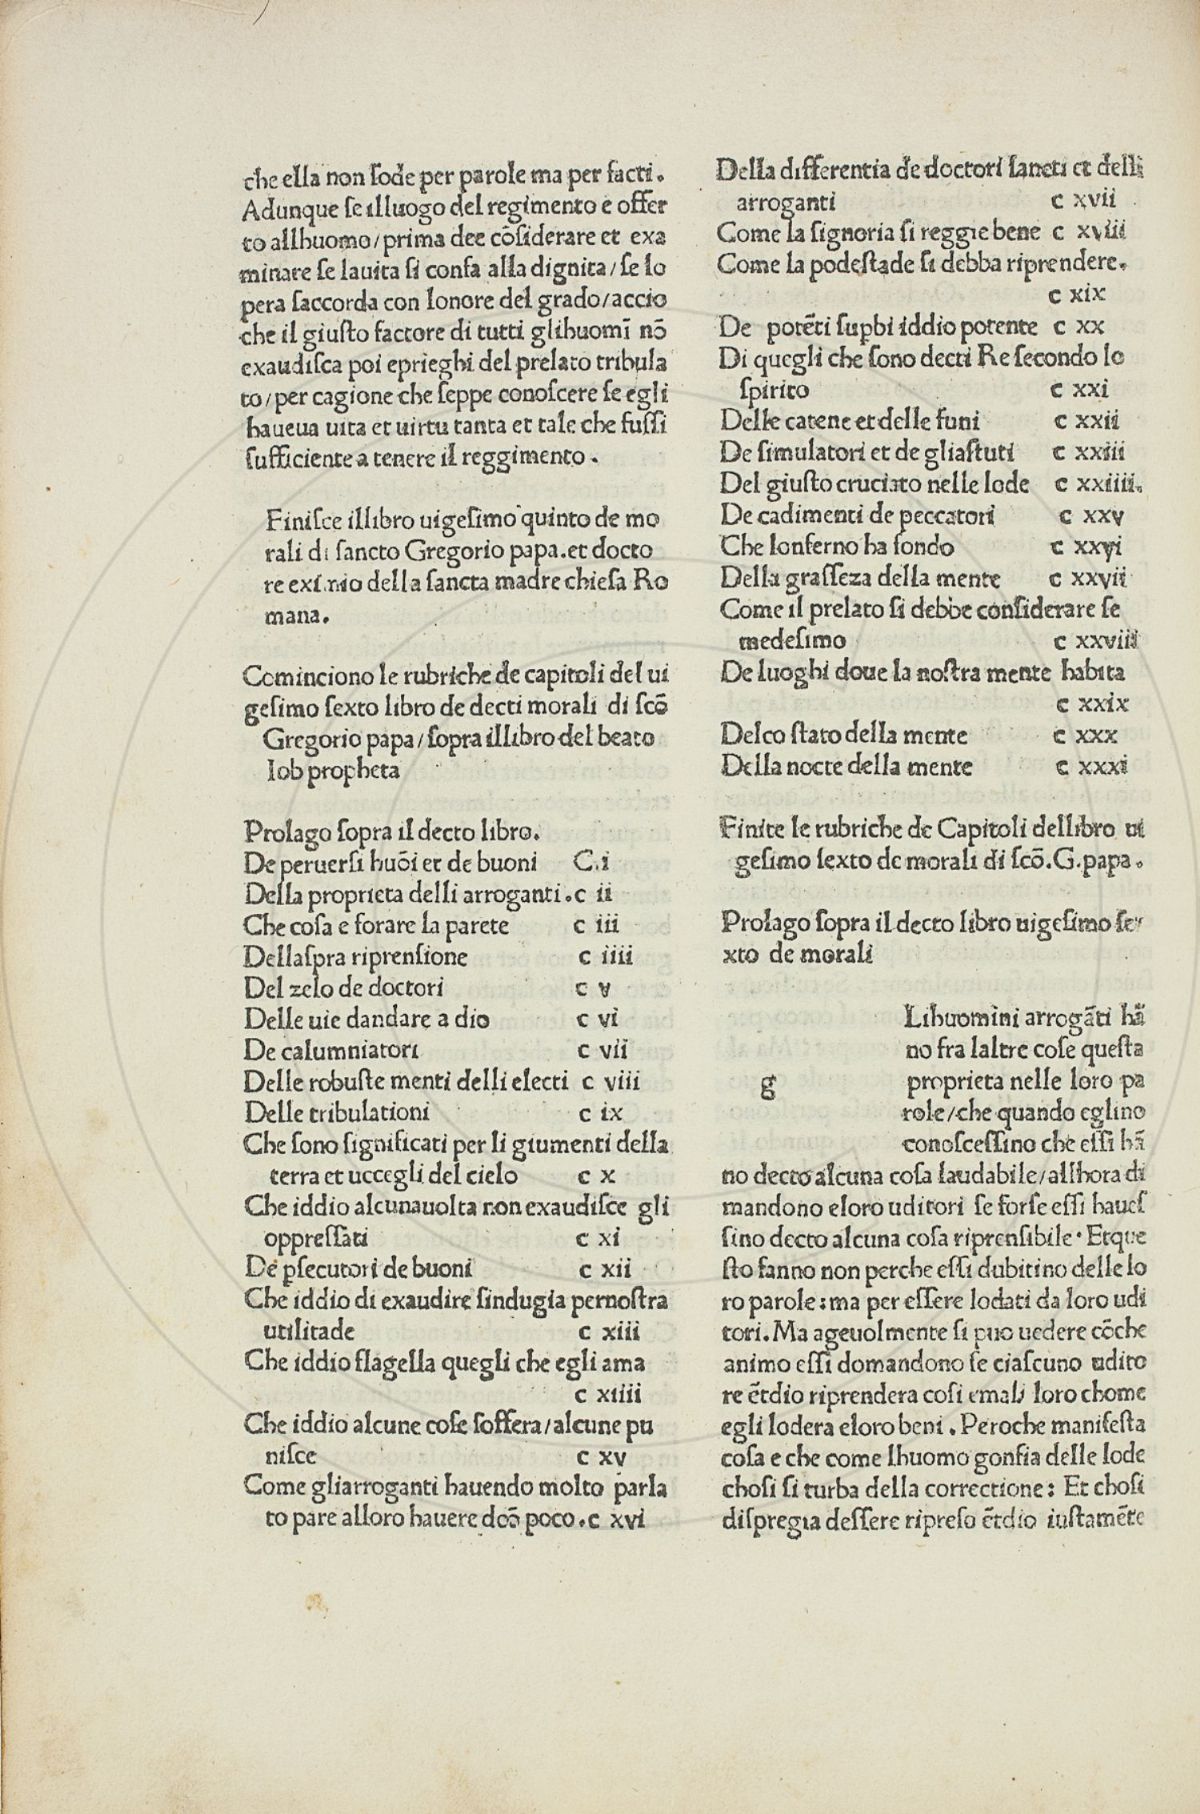 che ella non ſode per parole ma per facti.
Adunque ſe il luogo del regimento e offer
to allhuomo/prima dee cōſiderare et exa
minare ſe lauita ſi confa alla dignita/ſe lo
pera ſaccorda con lonore del grado/accio
che il giuſto factore di tutti glihuomī nō
exaudiſca poi eprieghi del prelato tribula
to/per cagione che ſeppe conoſcere ſe egli
haueua uita et uirtu tanta et tale che fuſſi
ſufficiente a tenere il reggimento.
Finiſce illibro uigeſimo quinto de mo
rali di ſancto Gregorio papa.et docto
re eximio della ſancta madre chieſa Ro
mana.
Cominciono le rubriche de capitoli del ui
geſimo ſexto libro de decti morali di ſcō
Gregorio papa/ſopra illibro del beato
Iob propheta
Prolago ſopra il decto libro.
De peruerſi huōi et de buoni C.i
Della proprieta delli arroganti.c ii
Che coſa e forare la parete c iii
Dellaſpra riprenſione c iiii
Del zelo de doctori c v
Delle uie dandare a dio c vi
De calumniatori c vii
Delle robuſte menti delli electi c viii
Delle tribulationi c ix
Che ſono ſignificati per li giumenti della
terra et uccegli del cielo c x
Che iddio alcunauolta non exaudiſce gli
oppreſſati c xi
De pſecutori de buoni c xii
Che iddio di exaudire ſindugia pernoſtra
utilitade c xiii
Che iddio flagella quegli che egli ama
c xiiii
Che iddio alcune coſe ſoffera/alcune pu
niſce c xv
Come gliarroganti hauendo molto parla
to pare alloro hauere dcō poco.c xvi
Della differentia de doctori ſancti et delli
arroganti c xvii
Come la ſignoria ſi reggie bene c xviii
Come la podeſtade ſi debba riprendere.
c xix
De potēti ſupbi iddio potente c xx
Di quegli che ſono decti Re ſecondo lo
ſpirito c xxi
Delle catene et delle funi c xxii
De ſimulatori et de gliaſtuti c xxiii
Del giuſto cruciato nelle lode c xxiiii.
De cadimenti de peccatori c xxv
Che lonferno ha fondo c xxvi
Della graſſeza della mente c xxvii
Come il prelato ſi debbe conſiderare ſe
medeſimo c xxviii
De luoghi doue la noſtra mente habita
c xxix
Delco ſtato della mente c xxx
Della nocte della mente c xxxi
Finite le rubriche de Capitoli dellibro ui
geſimo ſexto de morali di ſcō.G.papa.
Prolago ſopra il decto libro uigeſimo ſe
xto de morali
g
Lihuomini arrogāti hā
no fra laltre coſe queſta
proprieta nelle loro pa
role/che quando eglino
conoſceſſino che eſſi hā
no decto alcuna coſa laudabile/allhora di
mandono eloro uditori ſe forſe eſſi haueſ
ſino decto alcuna coſa riprenſibile. Etque
ſto fanno non perche eſſi dubitino delle lo
ro parole:ma per eſſere lodati da loro udi
tori.Ma ageuolmente ſi puo uedere cōche
animo eſſi domandono ſe ciaſcuno udito
re ētdio riprendera coſi emali loro chome
egli lodera eloro beni. Peroche manifeſta
coſa e che come lhuomo gonfia delle lode
choſi ſi turba della correctione: Et choſi
diſpregia deſſere ripreſo ētdio iuſtamēte